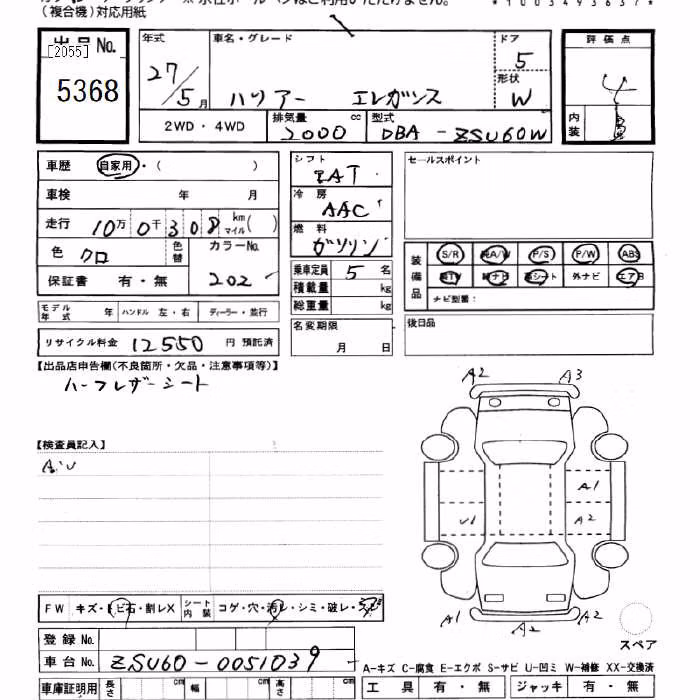 (複合機)対応用紙
出品No.
[2055]
5368
年式 車名・グレード ドア
27/5月 ハリアー エレガンス 5
形状
W
2WD・4WD 排気量 cc 2000 型式 DBA-ZSU60W
評価点
4
内装 B
車歴 自家用・( )
車検 年 月
走行 10万0千308 km マイル( )
色 クロ 色替 カラーNo. 202
保証書 有・無
シフト
AT
冷房
AAC
燃料
ガソリン
乗車定員 5 名
積載量 kg
総重量 kg
名変期限
月 日
セールスポイント
装備品 S/R 純A/W P/S P/W ABS
純TV 純ナビ 革シート 外ナビ エアB
ナビ型番:
後日品
モデル年式 年 ハンドル 左・右 ディーラー・並行
リサイクル料金 12550 円 預託済
【出品店申告欄(不良箇所・欠品・注意事項等)】
ハーフレザーシート
【検査員記入】
A・U
A2 A3
A1
U1 A2
A1 A2 A2
スペア
FW キズ・トビ石・割レX シート内装 コゲ・穴・汚レ・シミ・破レ・スレ
登録No.
車台No. ZSU60-0051039
A-キズ C-腐食 E-エクボ S-サビ U-凹ミ W-補修 XX-交換済
車庫証明用 長さ cm 幅 cm 高さ cm
工具 有・無 ジャッキ 有・無